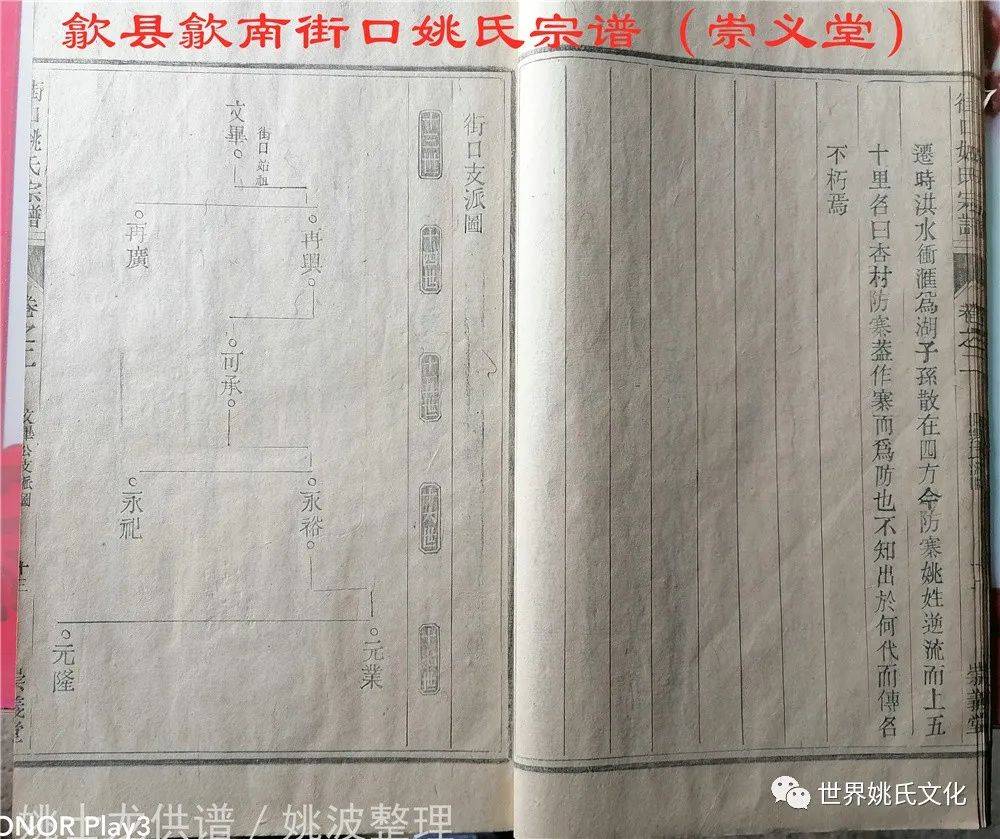 歙县歙南街口姚氏宗谱（崇义堂）
街口姚氏宗譜
卷之二
崇義堂
遷時洪水衝滙爲湖子孫散在四方今防寨姚姓逆流而上五
十里名曰杏村防寨葢作寨而爲防也不知出於何代而傳名
不朽焉
街口支派圖
十三世
十四世
十五世
十六世
十七世
文畢
街口始祖
再興
再廣
可承
永裕
永祀
元業
元隆
街口姚氏宗譜
卷之二
文畢公支派圖
十三
崇義堂
供谱 / 姚波整理
ONOR Play3
世界姚氏文化